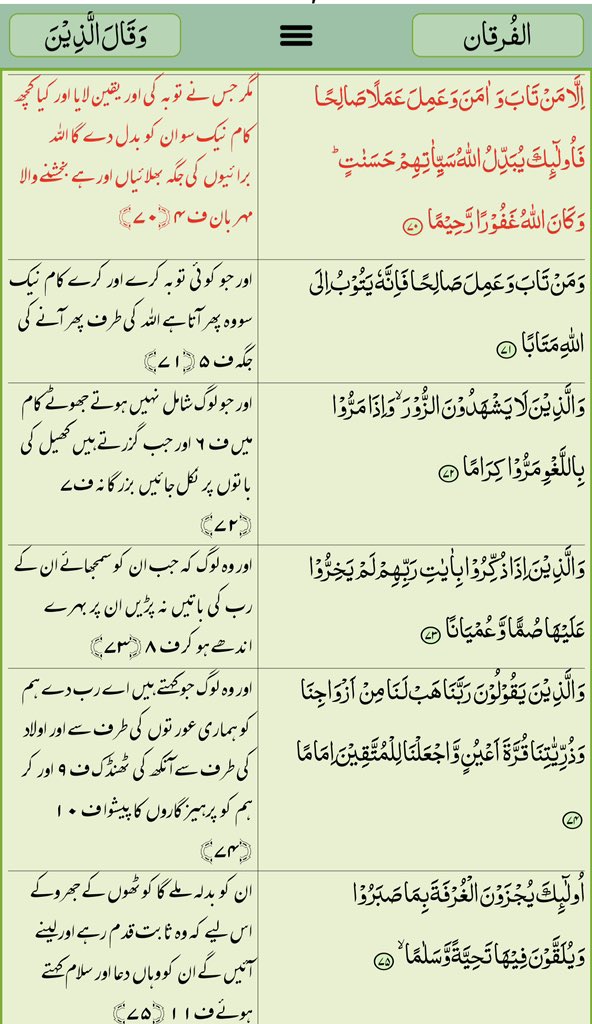 الفُرقان
وَقَالَ الَّذِیْنَ
اِلَّا مَنْ تَابَ وَ اٰمَنَ وَ عَمِلَ عَمَلًا صَالِحًا
فَاُولٰٓىِٕكَ یُبَدِّلُ اللّٰهُ سَیِّاٰتِهِمْ حَسَنٰتٍؕ
وَ كَانَ اللّٰهُ غَفُوْرًا رَّحِیْمًا ۷۰
مگر جس نے توبہ کی اور یقین لایا اور کیا کچھ
کام نیک سو ان کو بدل دے گا اللہ
برائیوں کی جگہ بھلائیاں اور ہے بخشنے والا
مہربان ف ۴ ﴿۷۰﴾
وَ مَنْ تَابَ وَ عَمِلَ صَالِحًا فَاِنَّهٗ یَتُوْبُ اِلَى
اللّٰهِ مَتَابًا ۷۱
اور جو کوئی توبہ کرے اور کرے کام نیک
سو وہ پھر آتا ہے اللہ کی طرف پھر آنے کی
جگہ ف ۵ ﴿۷۱﴾
وَ الَّذِیْنَ لَا یَشْهَدُوْنَ الزُّوْرَۙ وَ اِذَا مَرُّوْا
بِاللَّغْوِ مَرُّوْا كِرَامًا ۷۲
اور جو لوگ شامل نہیں ہوتے جھوٹے کام
میں ف ۶ اور جب گزرتے ہیں کھیل کی
باتوں پر نکل جائیں بزرگانہ ف ۷
﴿۷۲﴾
وَ الَّذِیْنَ اِذَا ذُكِّرُوْا بِاٰیٰتِ رَبِّهِمْ لَمْ یَخِرُّوْا
عَلَیْهَا صُمًّا وَّ عُمْیَانًا ۷۳
اور وہ لوگ کہ جب ان کو سمجھائے ان کے
رب کی باتیں نہ پڑیں ان پر بہرے
اندھے ہو کر ف ۸ ﴿۷۳﴾
وَ الَّذِیْنَ یَقُوْلُوْنَ رَبَّنَا هَبْ لَنَا مِنْ اَزْوَاجِنَا
وَ ذُرِّیّٰتِنَا قُرَّةَ اَعْیُنٍ وَّ اجْعَلْنَا لِلْمُتَّقِیْنَ اِمَامًا
۷۴
اور وہ لوگ جو کہتے ہیں اے رب دے ہم
کو ہماری عورتوں کی طرف سے اور اولاد
کی طرف سے آنکھ کی ٹھنڈک ف ۹ اور کر
ہم کو پرہیزگاروں کا پیشوا ف ۱۰
﴿۷۴﴾
اُولٰٓىِٕكَ یُجْزَوْنَ الْغُرْفَةَ بِمَا صَبَرُوْا
وَ یُلَقَّوْنَ فِیْهَا تَحِیَّةً وَّ سَلٰمًاۙ ۷۵
ان کو بدلہ ملے گا کوٹھوں کے جھروکے
اس لیے کہ وہ ثابت قدم رہے اور لینے
آئیں گے ان کو وہاں دعا اور سلام کہتے
ہوئے ف ۱۱ ﴿۷۵﴾